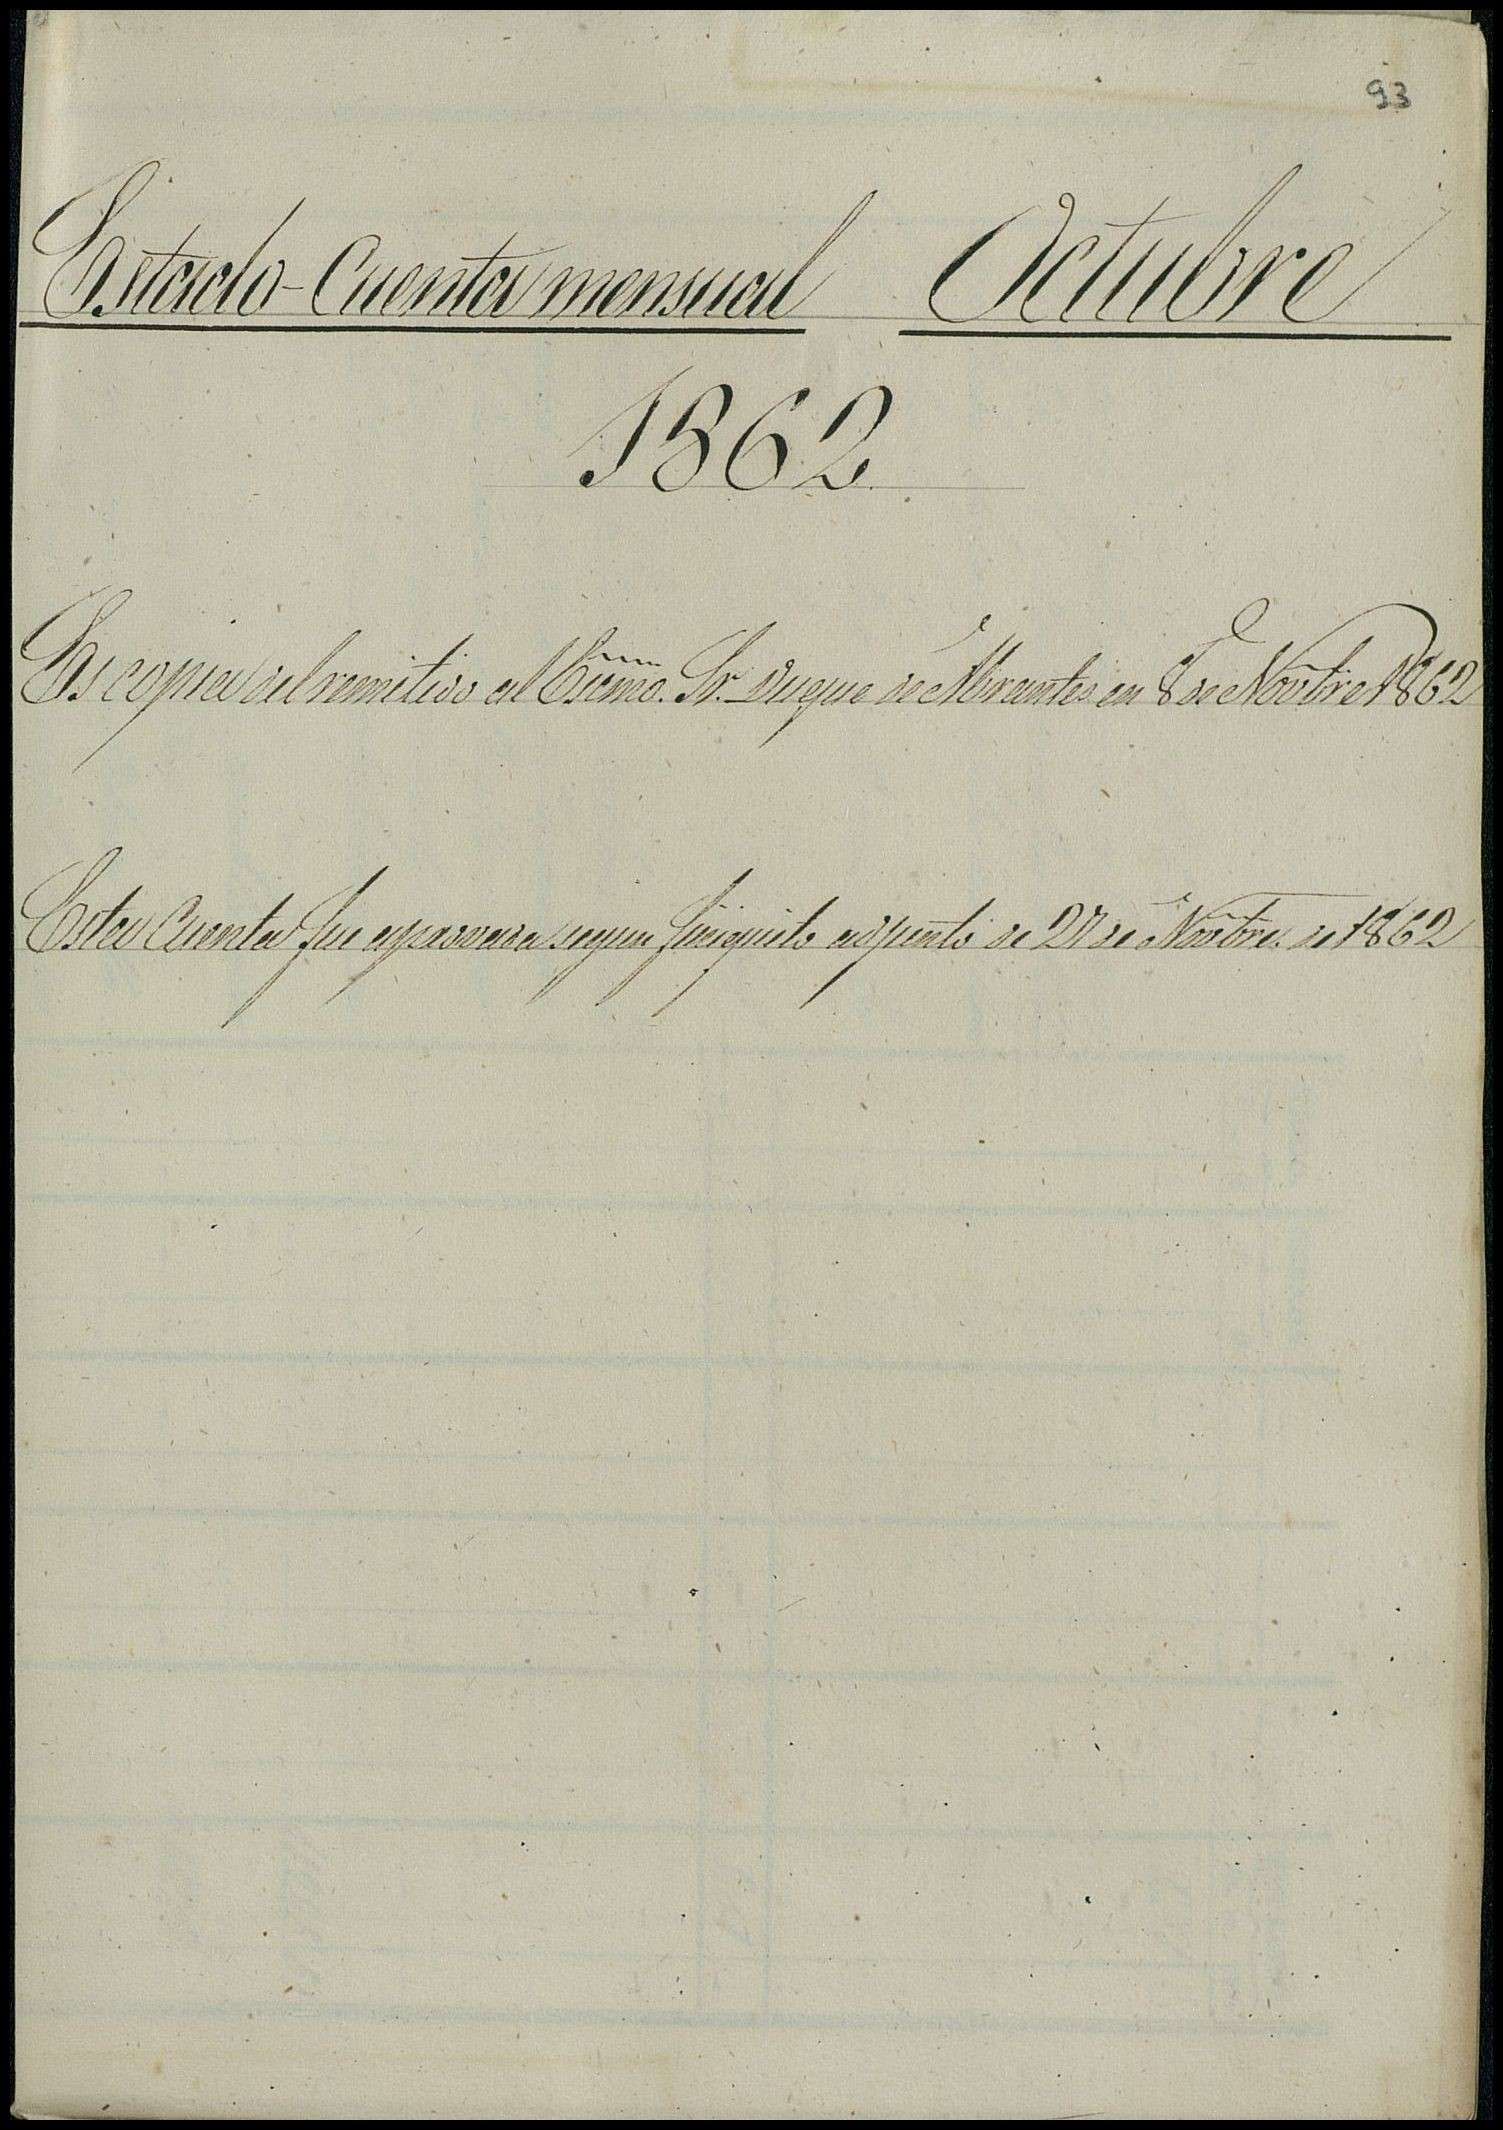 93
Estado-Cuenta mensual Octubre
1862
Es copia del remitido al Excmo. Sr. Duque de Abrantes en 8 de Novbre 1862
Esta Cuenta fue aprovada segun finiquito adjunto de 27 de Novbre. de 1862